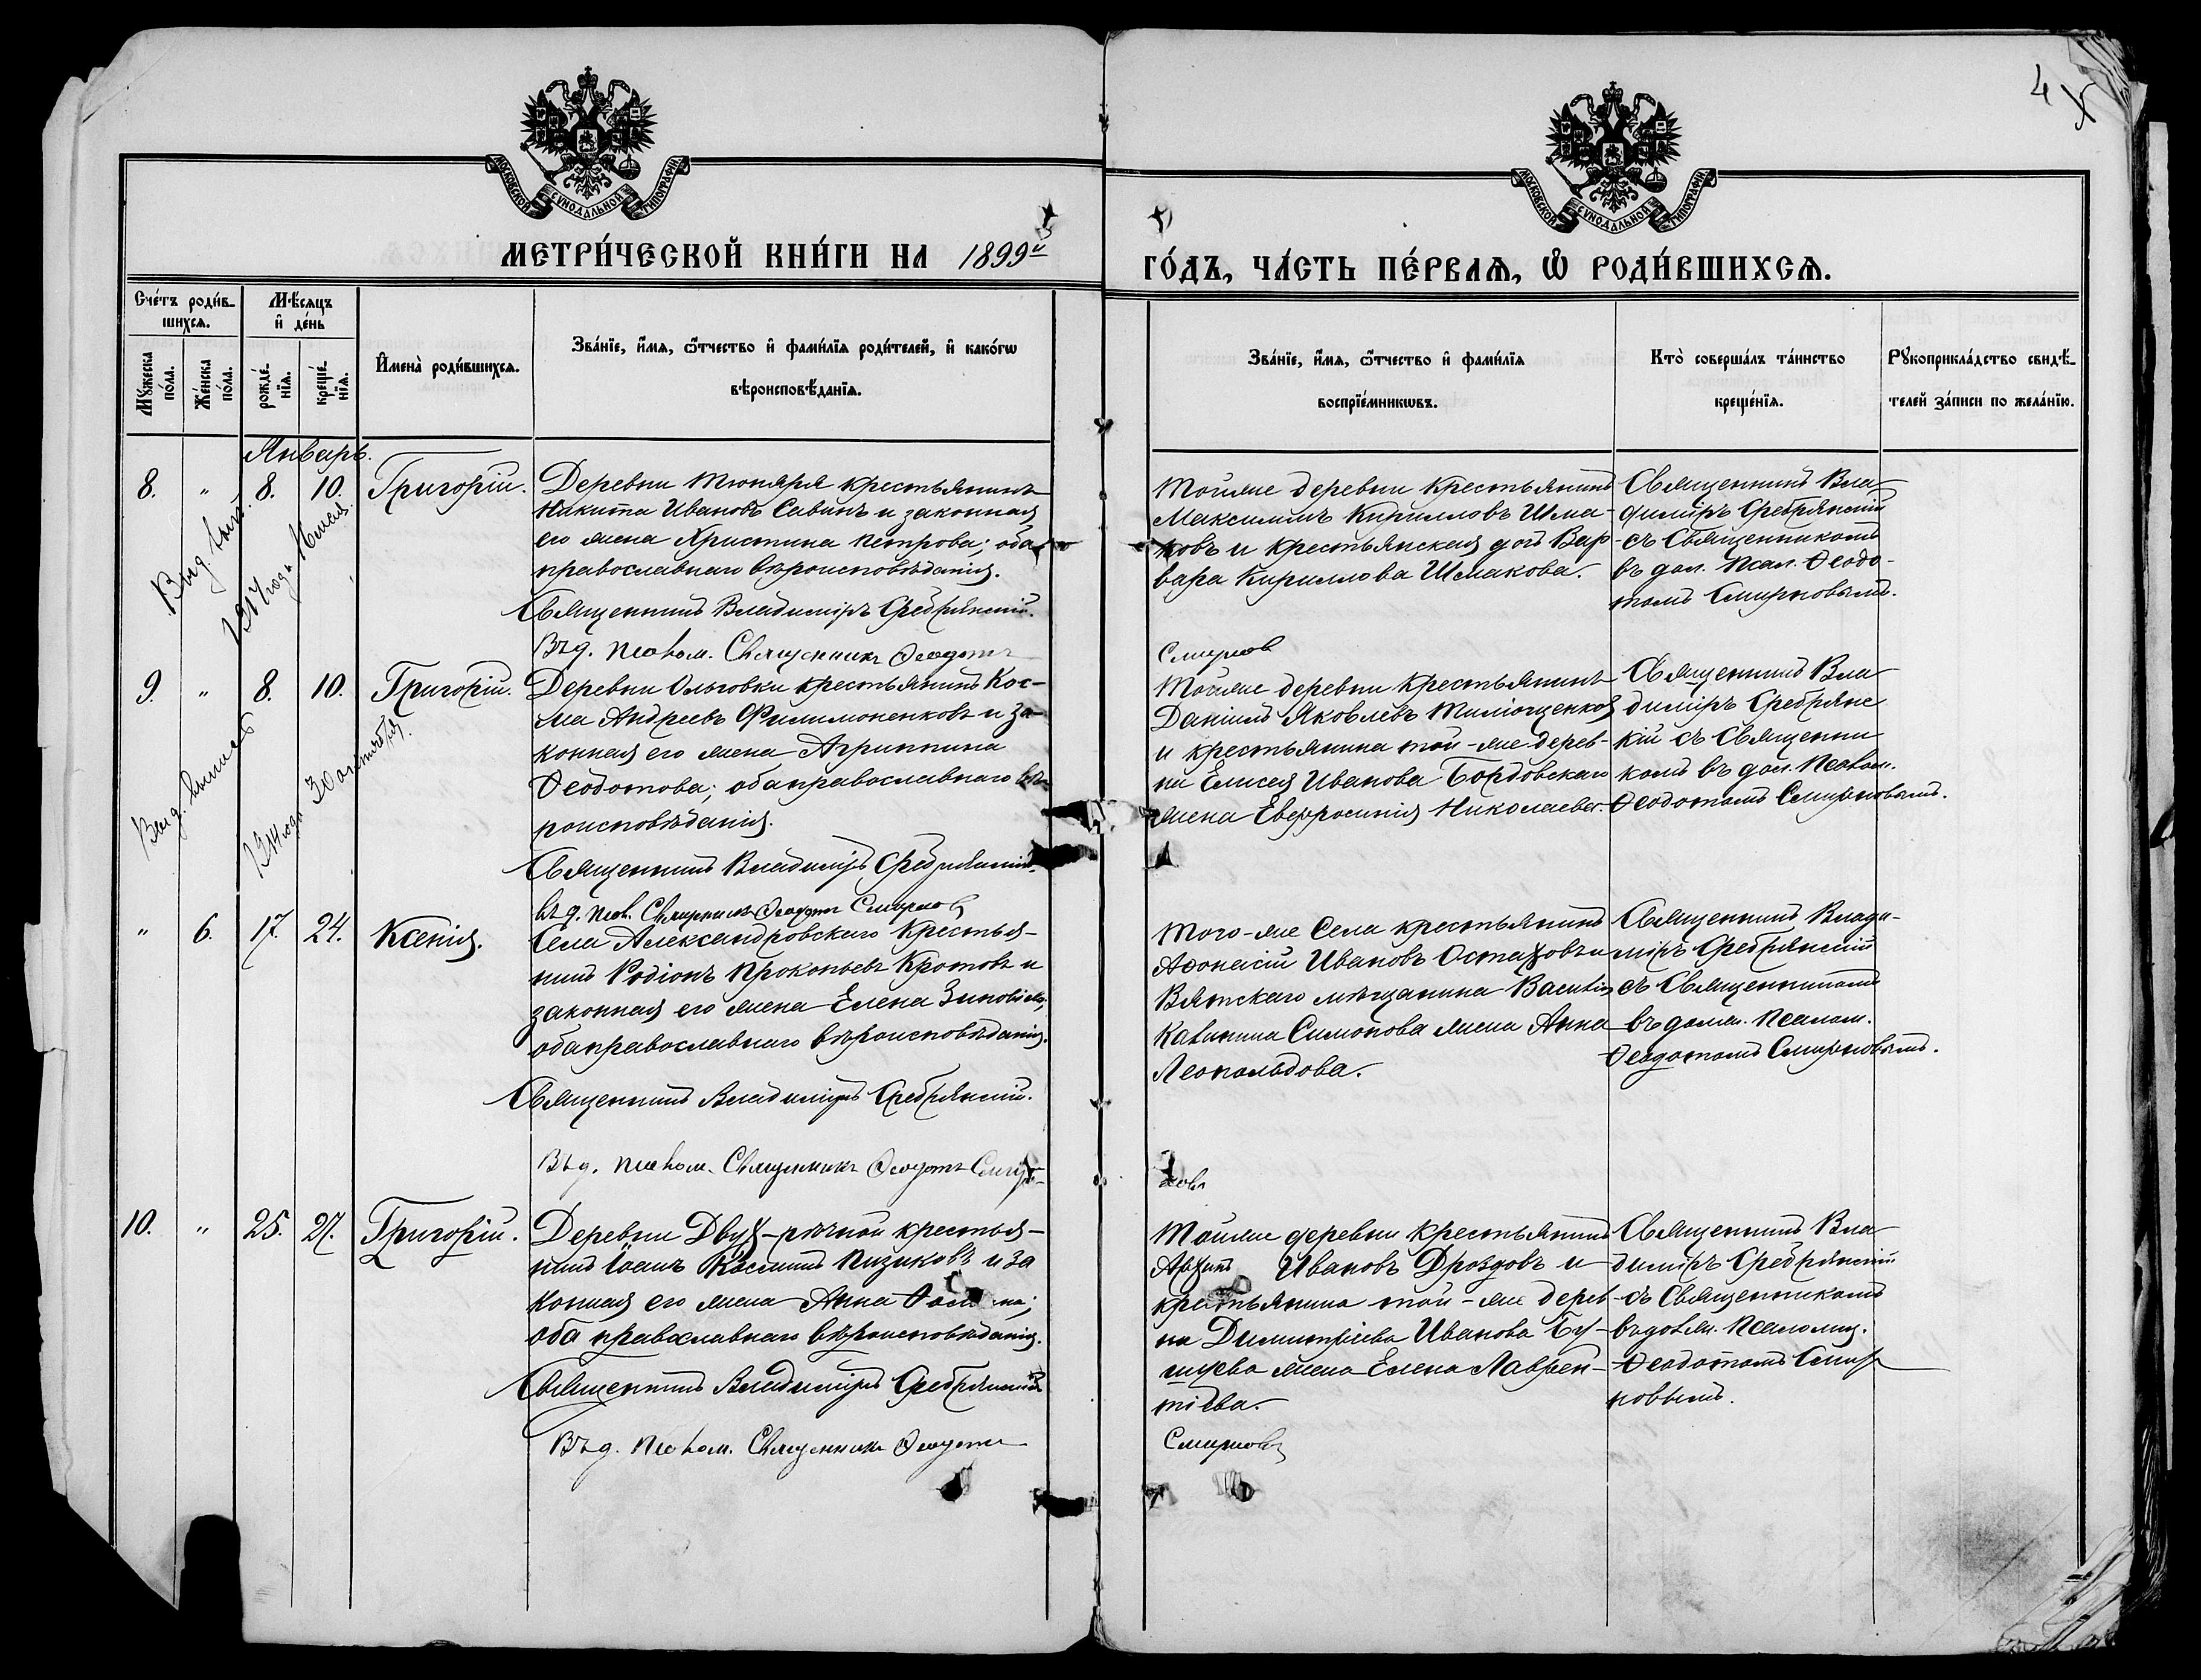 4
МОСКОВСКОЙ СѴНОДАЛЬНОЙ ТИПОГРАФІИ
МОСКОВСКОЙ СѴНОДАЛЬНОЙ ТИПОГРАФІИ
МЕТРИ́ЧЕСКОЙ КНИ́ГИ НА 1899й
ГО́ДЪ, ЧА́СТЬ ПЕ́РВАѦ, Ѽ РОДИ́ВШИХСѦ.
Сче́тъ роди́в-
шихсѧ.
Мѣ́сѧцъ
и҆ де́нь
Мꙋ́жеска
по́ла.
Же́нска
по́ла.
рожде́-
нїѧ.
креще́-
нїѧ.
И҆мена̀ роди́вшихсѧ.
Зва́нїе, и҆́мѧ, ѻ҆́тчество и҆ фами́лїѧ роди́телей, и҆ како́гѡ
вѣроисповѣ́данїѧ.
Зва́нїе, и҆́мѧ, ѻ҆́тчество и҆ фами́лїѧ
воспрїе́мникѡвъ.
Кто̀ соверша́лъ та́инство
креще́нїѧ.
Рꙋкоприкла́дство свидѣ́-
телей за́писи по жела́нїю.
Январь.
8. " 8. 10. Григорій.
Деревни Тюняря крестьянинъ
Никита Ивановъ Савинъ и законная
его жена Христина Петрова; оба
православнаго вѣроисповѣданія.
Священникъ Владиміръ Сребрянскій.
Въ д. псалом. Священникъ Ѳеодотъ
Смирнов
Той же деревни крестьянинъ
Максимъ Кирилловъ Шма-
ковъ и крестьянская дочь Вар
вара Кириллова Шмакова.
Священникъ Вла
диміръ Сребрянскій
съ Священникомъ
въ дол. псал. Ѳеодо-
томъ Смирновымъ.
Выд. вып.
1917 года
9. " 8. 10. Григорій.
Деревни Ольговки крестьянинъ Кос-
ма Андреевъ Филимоненковъ и за-
конная его жена Агриппина
Ѳеодотова; оба православнаго вѣ-
роисповѣданія.
Священникъ Владиміръ Сребрянскій.
въ д. псал. Священникъ Ѳеодотъ Смирнов
Той же деревни крестьянинъ
Даніилъ Яковлевъ
и крестьянина той-же дерев-
ни Елисея Иванова Бордовскаго
жена Евфросинія Николаева.
Священникъ Вла
диміръ Сребрянс
кій съ Священни
комъ въ дол. псалом.
Ѳеодотомъ Смирновымъ.
Выд.
30 октября.
" 6. 17. 24. Ксенія.
Села Александровскаго крестья-
нинъ Родіонъ Прокопьевъ Кротовъ и
законная его жена Елена Зиновіева;
оба православнаго вѣроисповѣданія.
Священникъ Владиміръ Сребрянскій.
Въ д. псалом. Священникъ Ѳеодотъ Смир-
новъ
Того-же Села крестьянинъ
Аѳонасій Ивановъ Остаховъ и
Вятскаго мѣщанина Василія
Калинина Симонова жена Анна
Леопольдова.
Священникъ Влади-
міръ Сребрянскій
съ Священникомъ
въ долж. псалом.
Ѳеодотомъ Смирновымъ.
10. " 25. 27. Григорій.
Деревни Двух-рѣчной крестья-
нинъ Іоанъ Косминъ Пизиковъ и за
конная его жена Анна
оба православнаго вѣроисповѣданія.
Священникъ Владиміръ Сребрянскій
Въ д. псалом. Священникъ Ѳеодотъ
Смирновъ
Той же деревни крестьянинъ
Архипъ Ивановъ Дроздовъ и
крестьянина той-же дерев
ни Димитріева Иванова Бу-
жена Елена Лаврен-
тіева.
Священникъ Вла
диміръ Сребрянскій
съ Священникомъ
въ долж. псаломщ.
Ѳеодотомъ Смир
новымъ.